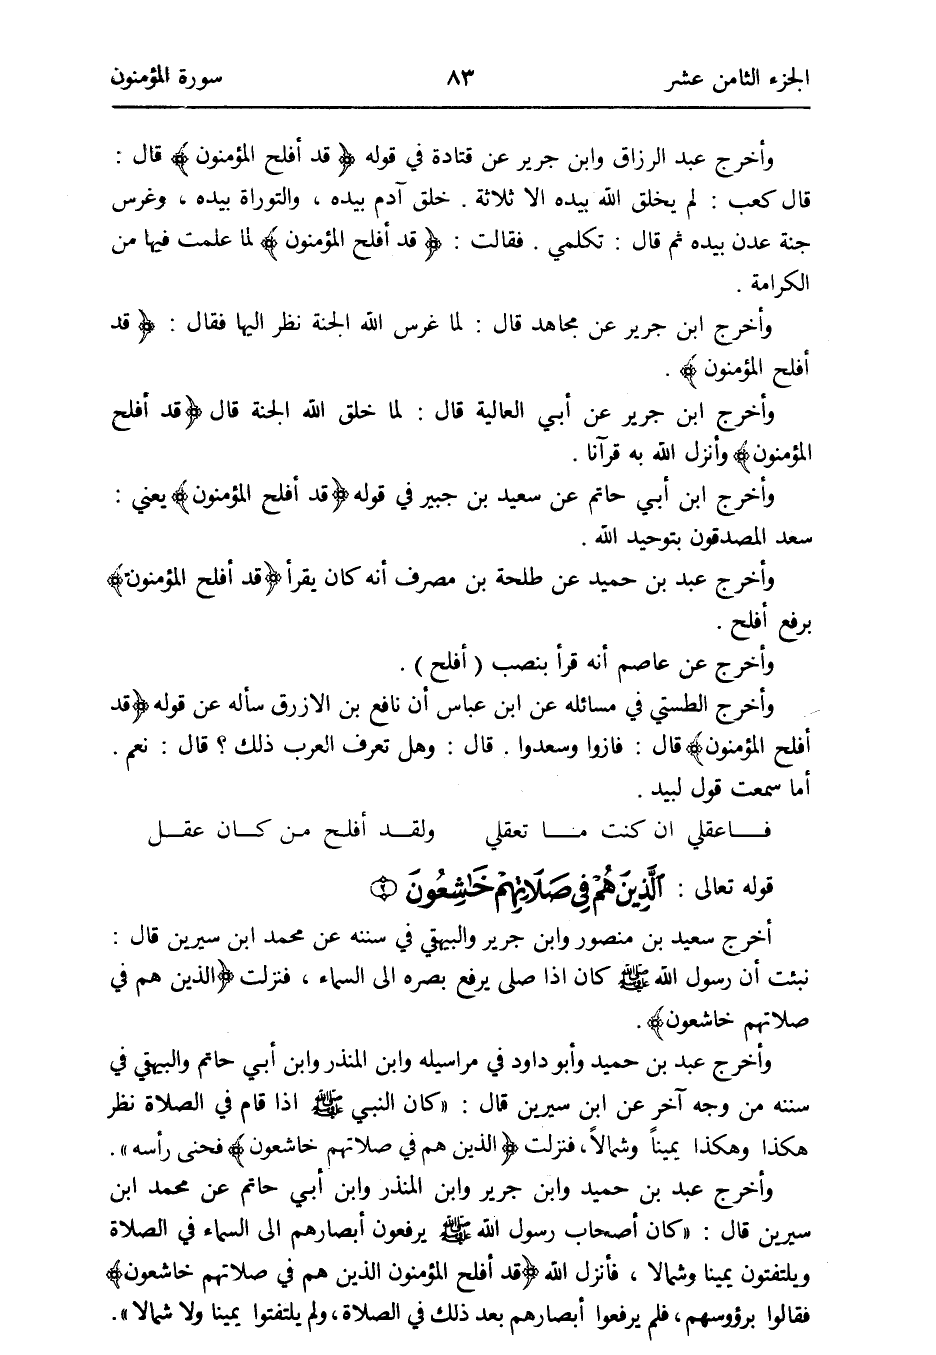 الجزء الثامن عشر ٨٣ سورة المؤمنون
وأخرج عبد الرزاق وابن جرير عن قتادة في قوله ﴿ قد أفلح المؤمنون ﴾ قال :
قال كعب : لم يخلق الله بيده الا ثلاثة . خلق آدم بيده ، والتوراة بيده ، وغرس
جنة عدن بيده ثم قال : تكلمي . فقالت : ﴿ قد أفلح المؤمنون ﴾ لما علمت فيها من
الكرامة .
وأخرج ابن جرير عن مجاهد قال : لما غرس الله الجنة نظر اليها فقال : ﴿ قد
أفلح المؤمنون ﴾ .
وأخرج ابن جرير عن أبي العالية قال : لما خلق الله الجنة قال ﴿قد أفلح
المؤمنون﴾ وأنزل الله به قرآنا .
وأخرج ابن أبي حاتم عن سعيد بن جبير في قوله ﴿قد أفلح المؤمنون﴾ يعني :
سعد المصدقون بتوحيد الله .
وأخرج عبد بن حميد عن طلحة بن مصرف أنه كان يقرأ ﴿قد أفلح المؤمنون﴾
برفع أفلح .
وأخرج عن عاصم أنه قرأ بنصب ( أفلح ) .
وأخرج الطستي في مسائله عن ابن عباس أن نافع بن الازرق سأله عن قوله ﴿قد
أفلح المؤمنون﴾ قال : فازوا وسعدوا . قال : وهل تعرف العرب ذلك ؟ قال : نعم .
أما سمعت قول لبيد .
فاعقلي ان كنت ما تعقلي ولقد أفلح من كان عقل
قوله تعالى : ٱلَّذِينَ هُمْ فِي صَلَاتِهِمْ خَاشِعُونَ ٢
أخرج سعيد بن منصور وابن جرير والبيهقي في سننه عن محمد ابن سيرين قال :
نبئت أن رسول الله ﷺ كان اذا صلى يرفع بصره الى السماء ، فنزلت ﴿الذين هم في
صلاتهم خاشعون﴾ .
وأخرج عبد بن حميد وأبو داود في مراسيله وابن المنذر وابن أبي حاتم والبيهقي في
سننه من وجه آخر عن ابن سيرين قال : «كان النبي ﷺ اذا قام في الصلاة نظر
هكذا وهكذا يميناً وشمالاً، فنزلت ﴿ الذين هم في صلاتهم خاشعون﴾ فحنى رأسه».
وأخرج عبد بن حميد وابن جرير وابن المنذر وابن أبي حاتم عن محمد ابن
سيرين قال : «كان أصحاب رسول الله ﷺ يرفعون أبصارهم الى السماء في الصلاة
ويلتفتون يمينا وشمالا ، فأنزل الله ﴿قد أفلح المؤمنون الذين هم في صلاتهم خاشعون﴾
فقالوا برؤوسهم، فلم يرفعوا أبصارهم بعد ذلك في الصلاة، ولم يلتفتوا يمينا ولا شمالا».